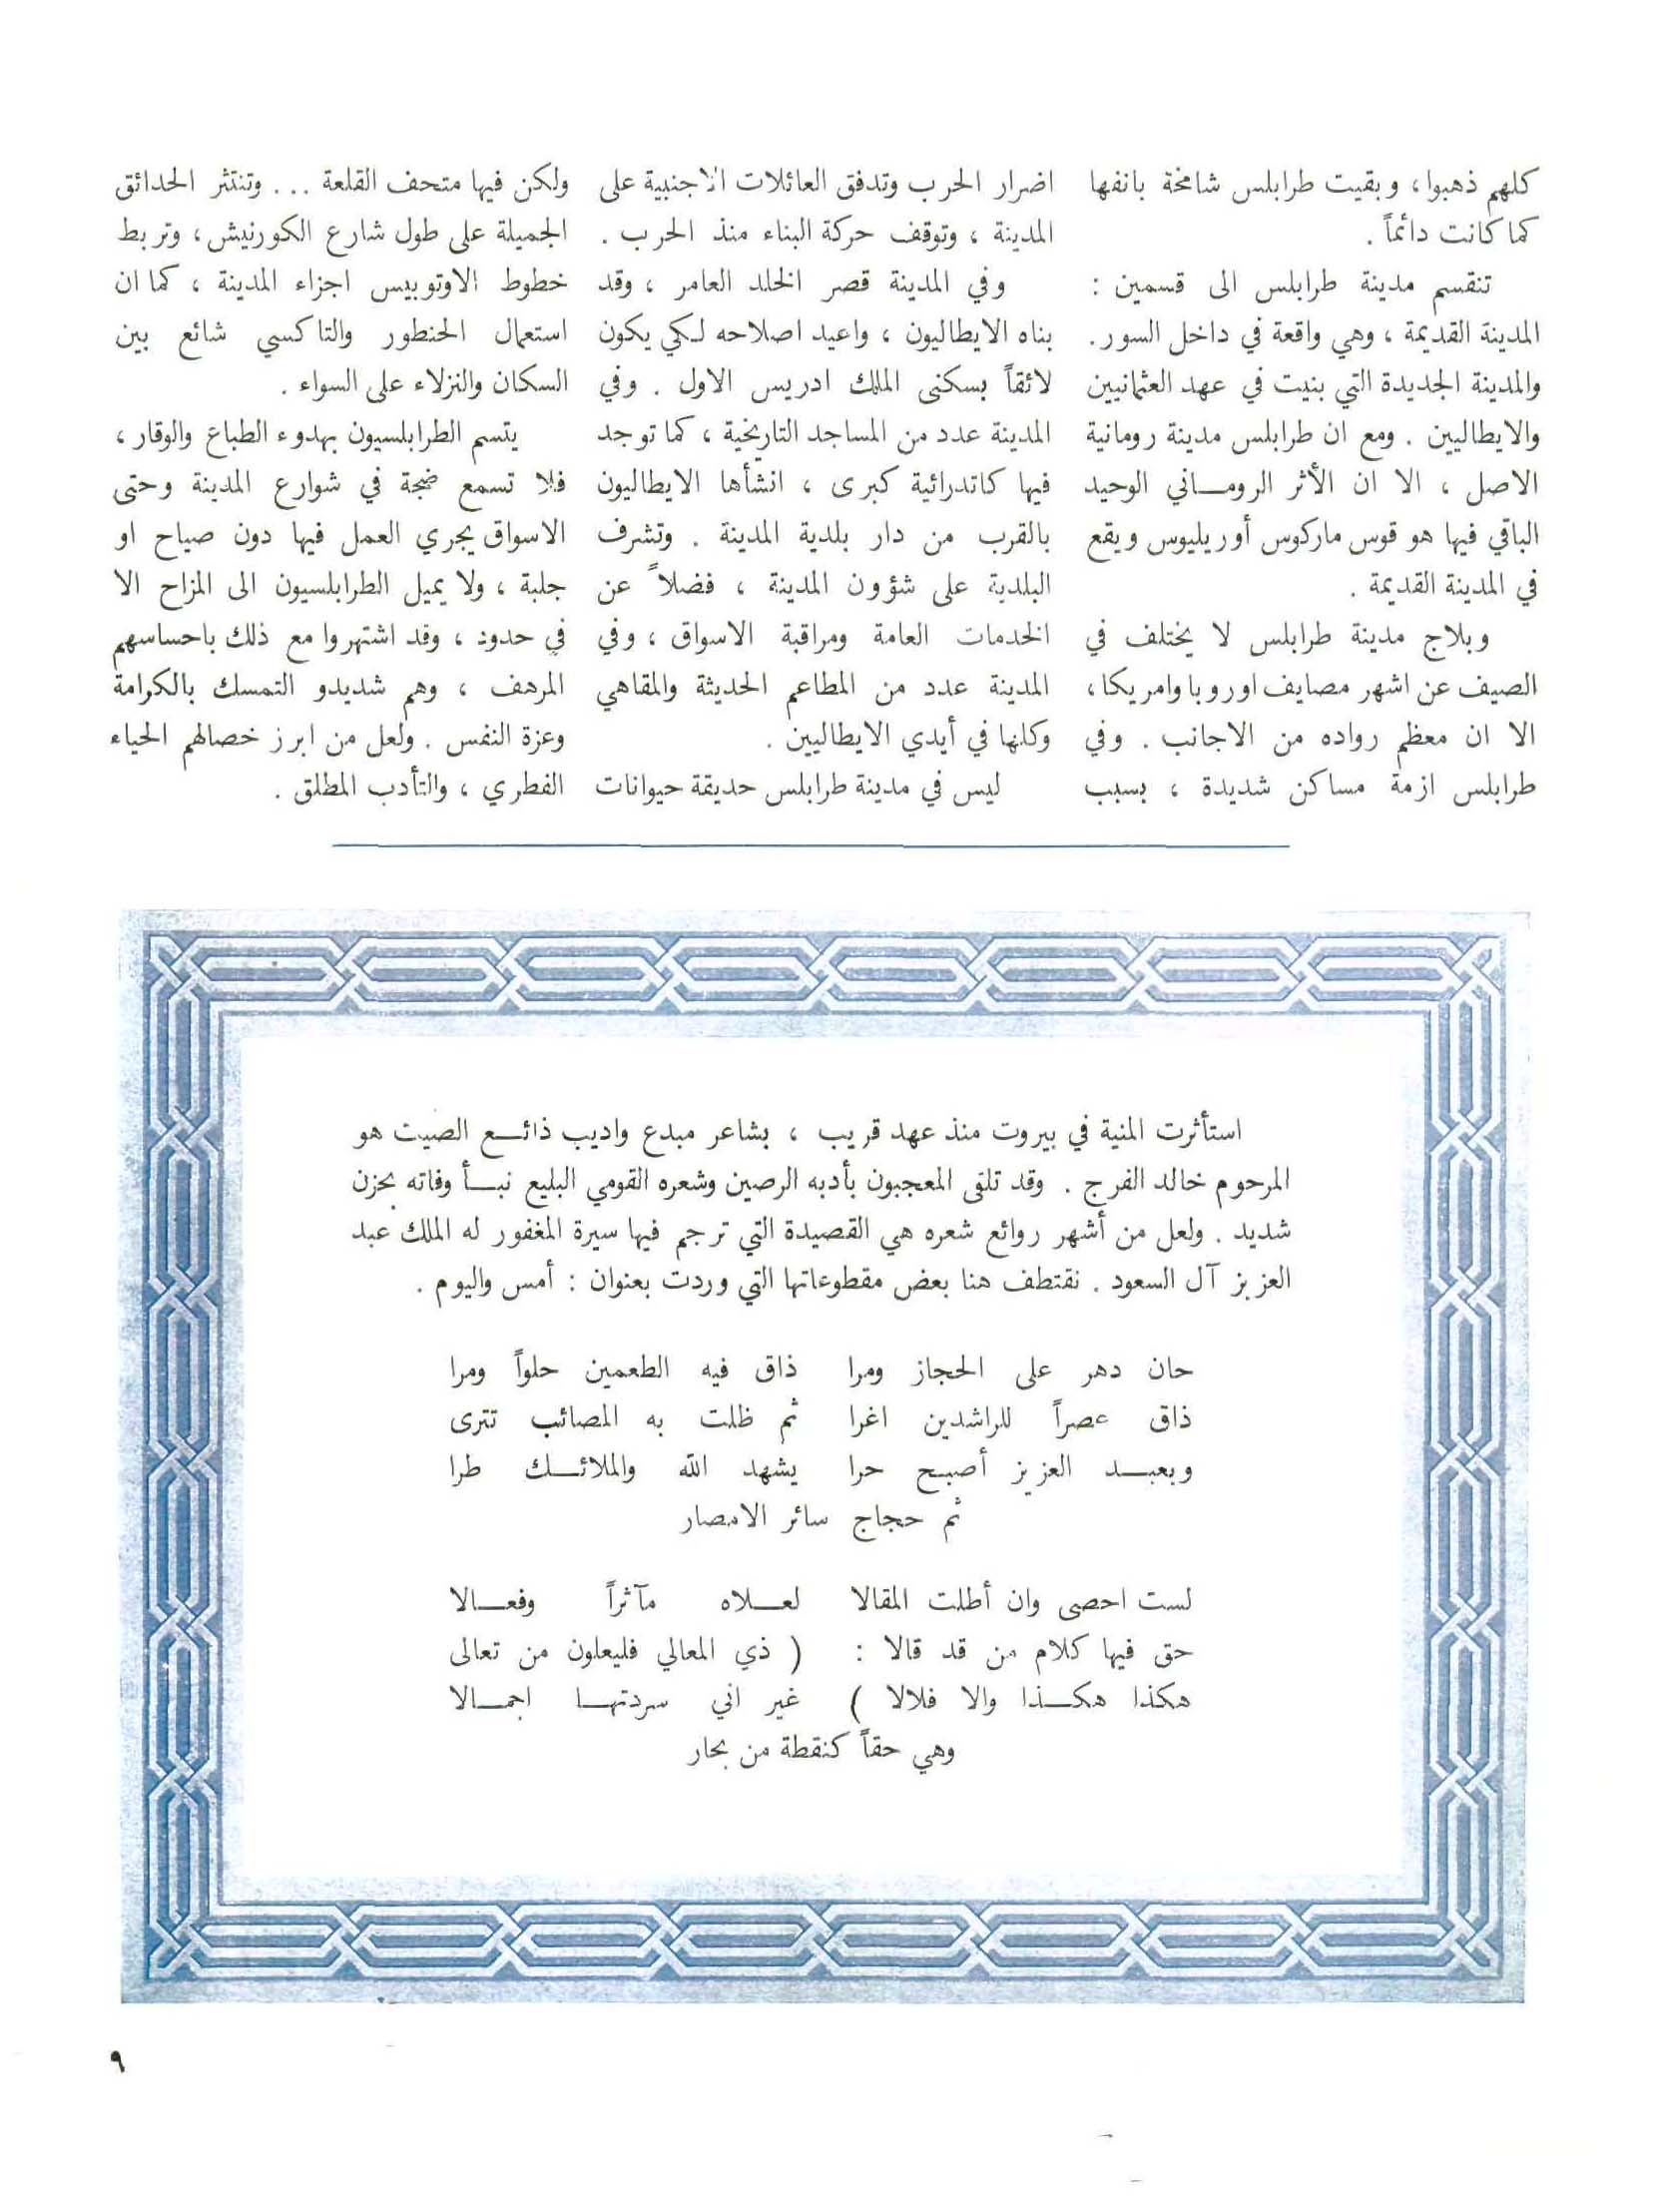 كلهم ذهبوا، وبقيت طرابلس شامخة بانفها
كما كانت دائماً .
تنقسم مدينة طرابلس الى قسمين :
المدينة القديمة ، وهي واقعة في داخل السور.
والمدينة الجديدة التي بنيت في عهد العثمانيين
والايطاليين . ومع ان طرابلس مدينة رومانية
الاصل ، الا ان الأثر الرومـــاني الوحيد
الباقي فيها هو قوس ماركوس أوريليوس ويقع
في المدينة القديمة .
وبلاج مدينة طرابلس لا يختلف في
الصيف عن اشهر مصايف اوروبا وامريكا،
الا ان معظم رواده من الاجانب . وفي
طرابلس ازمة مساكن شديدة ، بسبب
اضرار الحرب وتدفق العائلات الاجنبية على
المدينة ، وتوقف حركة البناء منذ الحرب .
وفي المدينة قصر الخلد العامر ، وقد
بناه الايطاليون ، واعيد اصلاحه لكي يكون
لائقاً بسكنى الملك ادريس الاول . وفي
المدينة عدد من المساجد التاريخية ، كما توجد
فيها كاتدرائية كبرى ، انشأها الايطاليون
بالقرب من دار بلدية المدينة . وتشرف
البلدية على شؤون المدينة ، فضلاً عن
الخدمات العامة ومراقبة الاسواق ، وفي
المدينة عدد من المطاعم الحديثة والمقاهي
وكلها في أيدي الايطاليين .
ليس في مدينة طرابلس حديقة حيوانات
ولكن فيها متحف القلعة ... وتنتثر الحدائق
الجميلة على طول شارع الكورنيش، وتربط
خطوط الاوتوبيس اجزاء المدينة ، كما ان
استعمال الحنطور والتاكسي شائع بين
السكان والنزلاء على السواء .
يتسم الطرابلسيون بهدوء الطباع والوقار ،
فلا تسمع ضجة في شوارع المدينة وحتى
الاسواق يجري العمل فيها دون صياح او
جلبة ، ولا يميل الطرابلسيون الى المزاح الا
في حدود ، وقد اشتهروا مع ذلك باحساسهم
المرهف ، وهم شديدو التمسك بالكرامة
وعزة النفس . ولعل من ابرز خصالهم الحياء
الفطري ، والتأدب المطلق .
استأثرت المنية في بيروت منذ عهد قريب ، بشاعر مبدع واديب ذائـــع الصيت هو
المرحوم خالد الفرج . وقد تلقى المعجبون بأدبه الرصين وشعره القومي البليع نبـــأ وفاته بحزن
شديد . ولعل من أشهر روائع شعره هي القصيدة التي ترجم فيها سيرة المغفور له الملك عبد
العزيز آل السعود . نقتطف هنا بعض مقطوعاتها التي وردت بعنوان : أمس واليوم .
حان دهر على الحجاز ومرا ذاق فيه الطعمين حلواً ومرا
ذاق عصراً للراشدين اغرا ثم ظلت به المصائب تترى
وبعبـــد العزيز أصبح حرا يشهد الله والملائـــك طرا
ثم حجاج سائر الامصار
لست احصى وان أطلت المقالا لعـــلاه مآثراً وفعـــالا
حق فيها كلام من قد قالا : ( ذي المعالي فليعلون من تعالى
هكذا هكـــذا والا فلالا ) غير اني سردتهـــا اجمـــالا
وهي حقاً كنقطة من بحار
٩